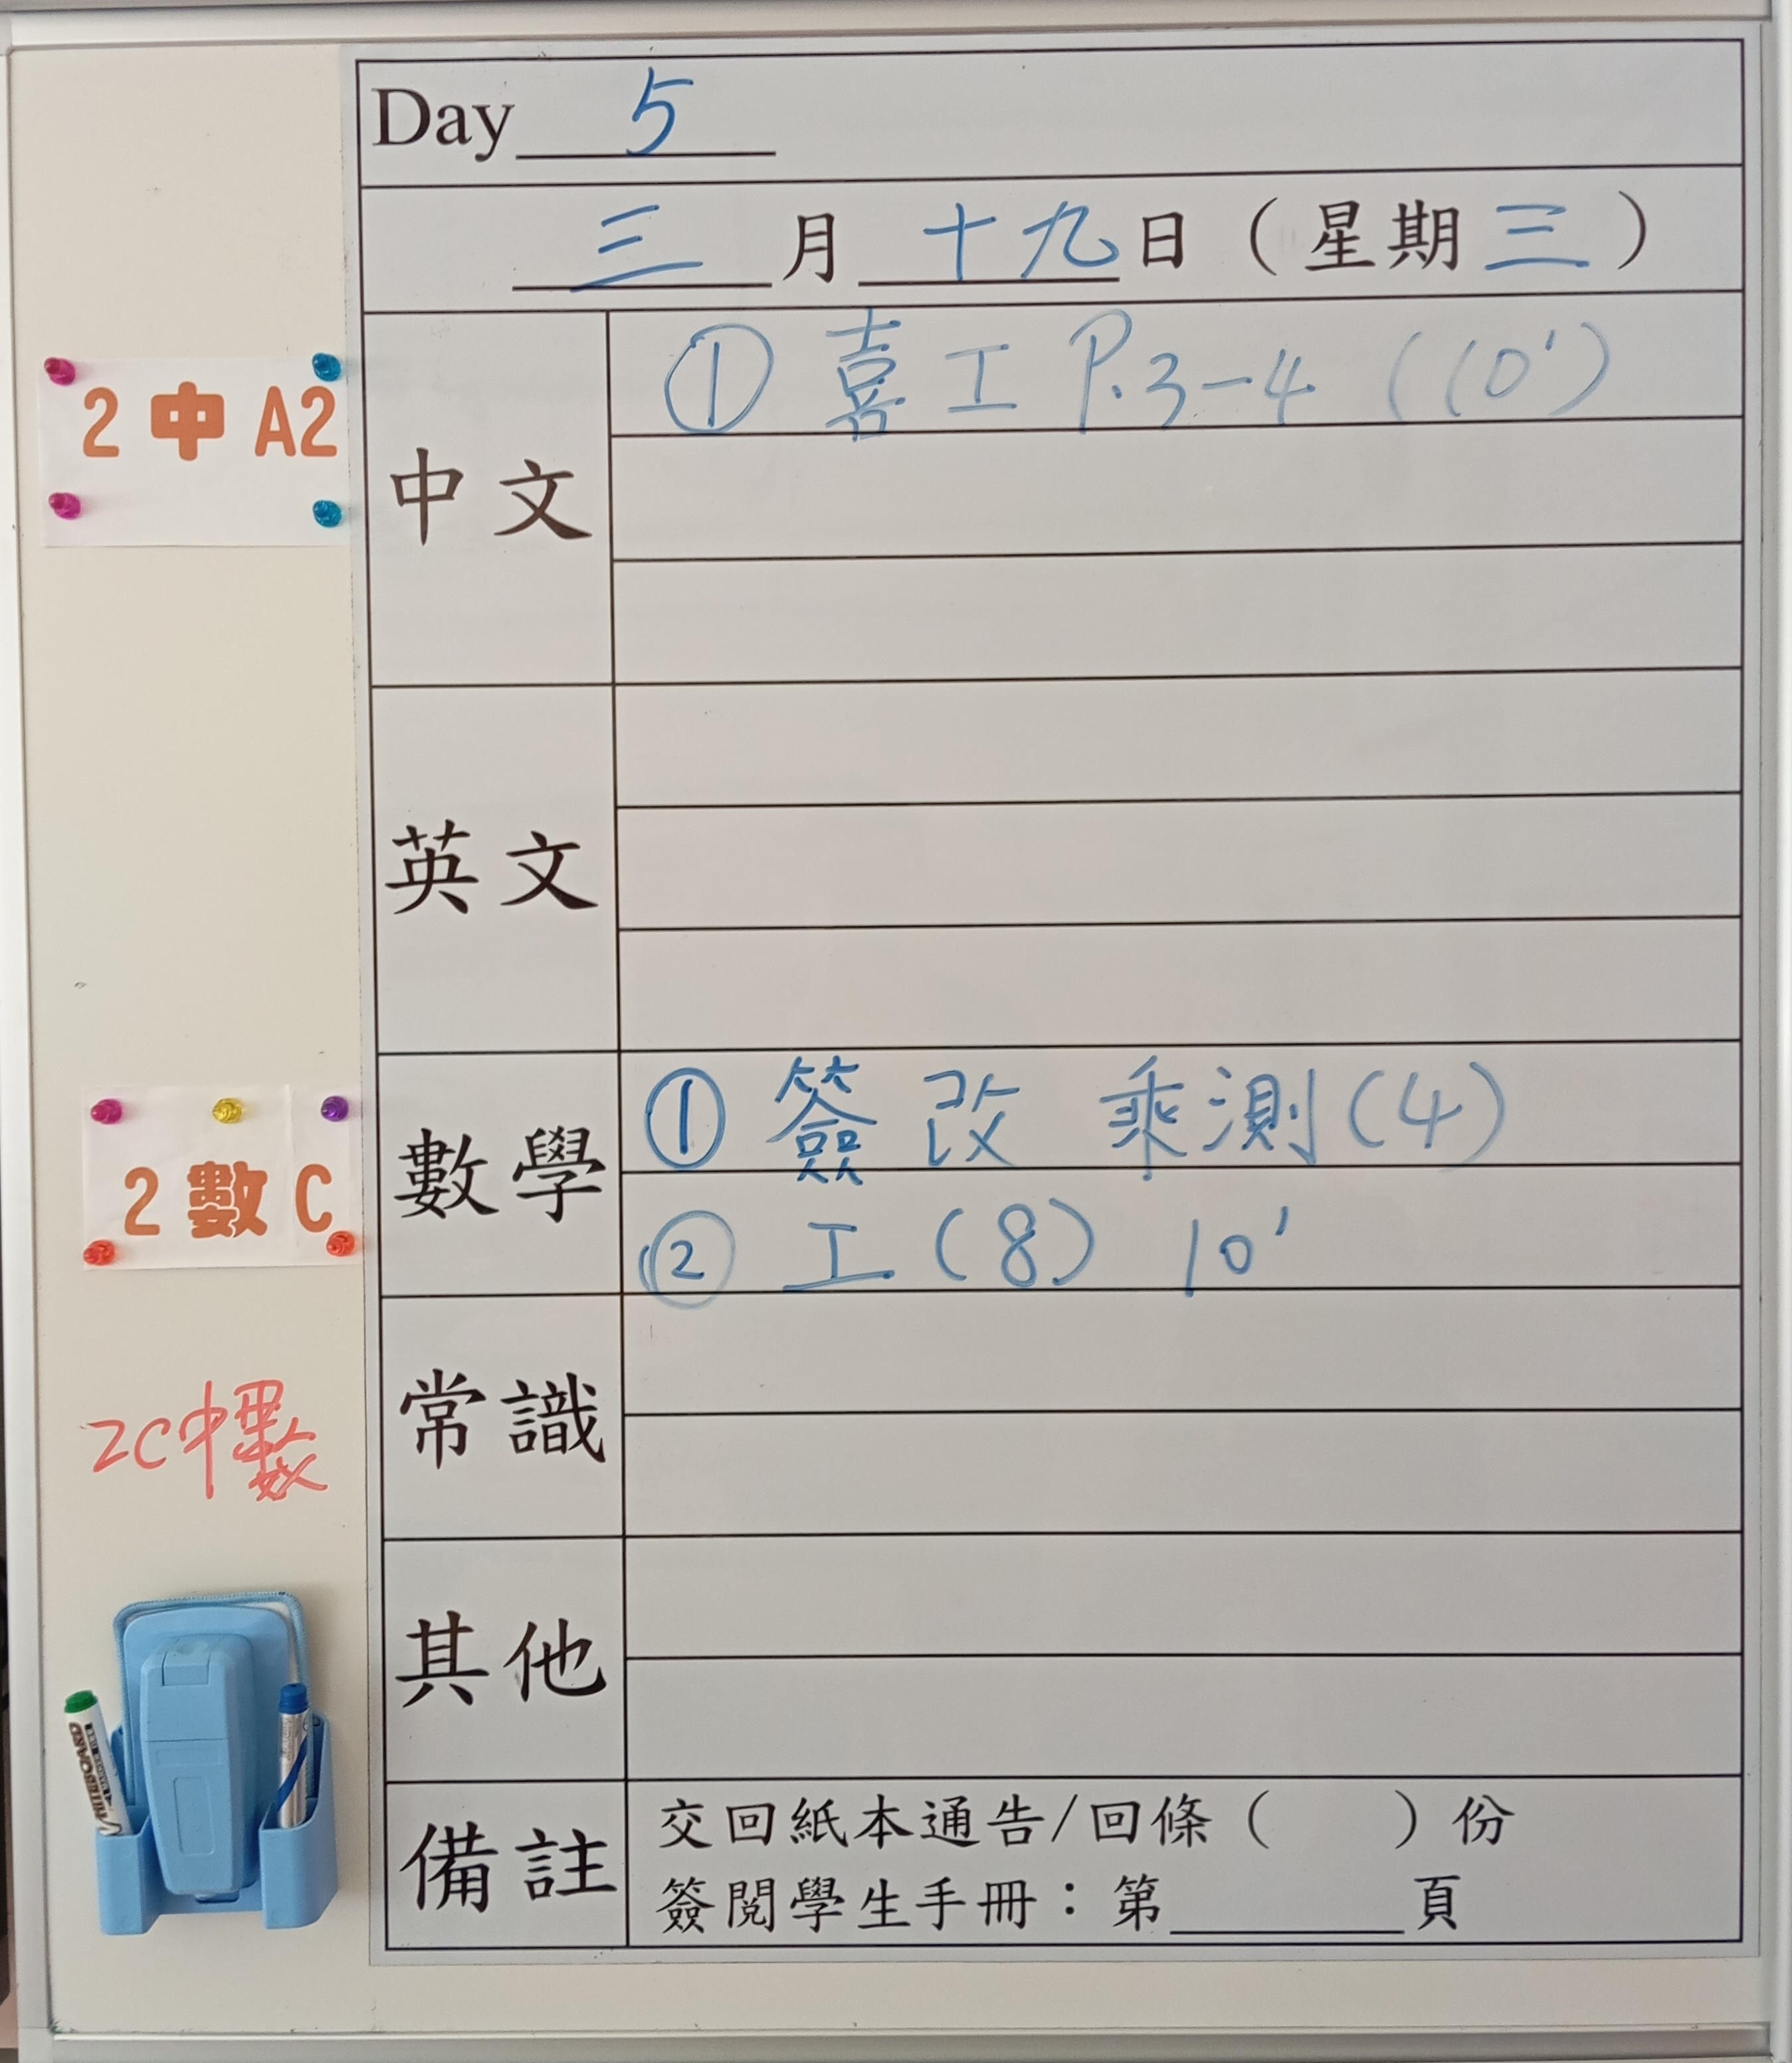 Day 5
三月十九日（星期三）
2 中 A2
中文
① 喜工 P.3-4 (10')
英文
2 數 C
數學
① 簽改 乘測(4)
② 工(8) 10'
2C中數
常識
其他
備註
交回紙本通告/回條（　　）份
簽閱學生手冊：第______頁
WHITEBOARD